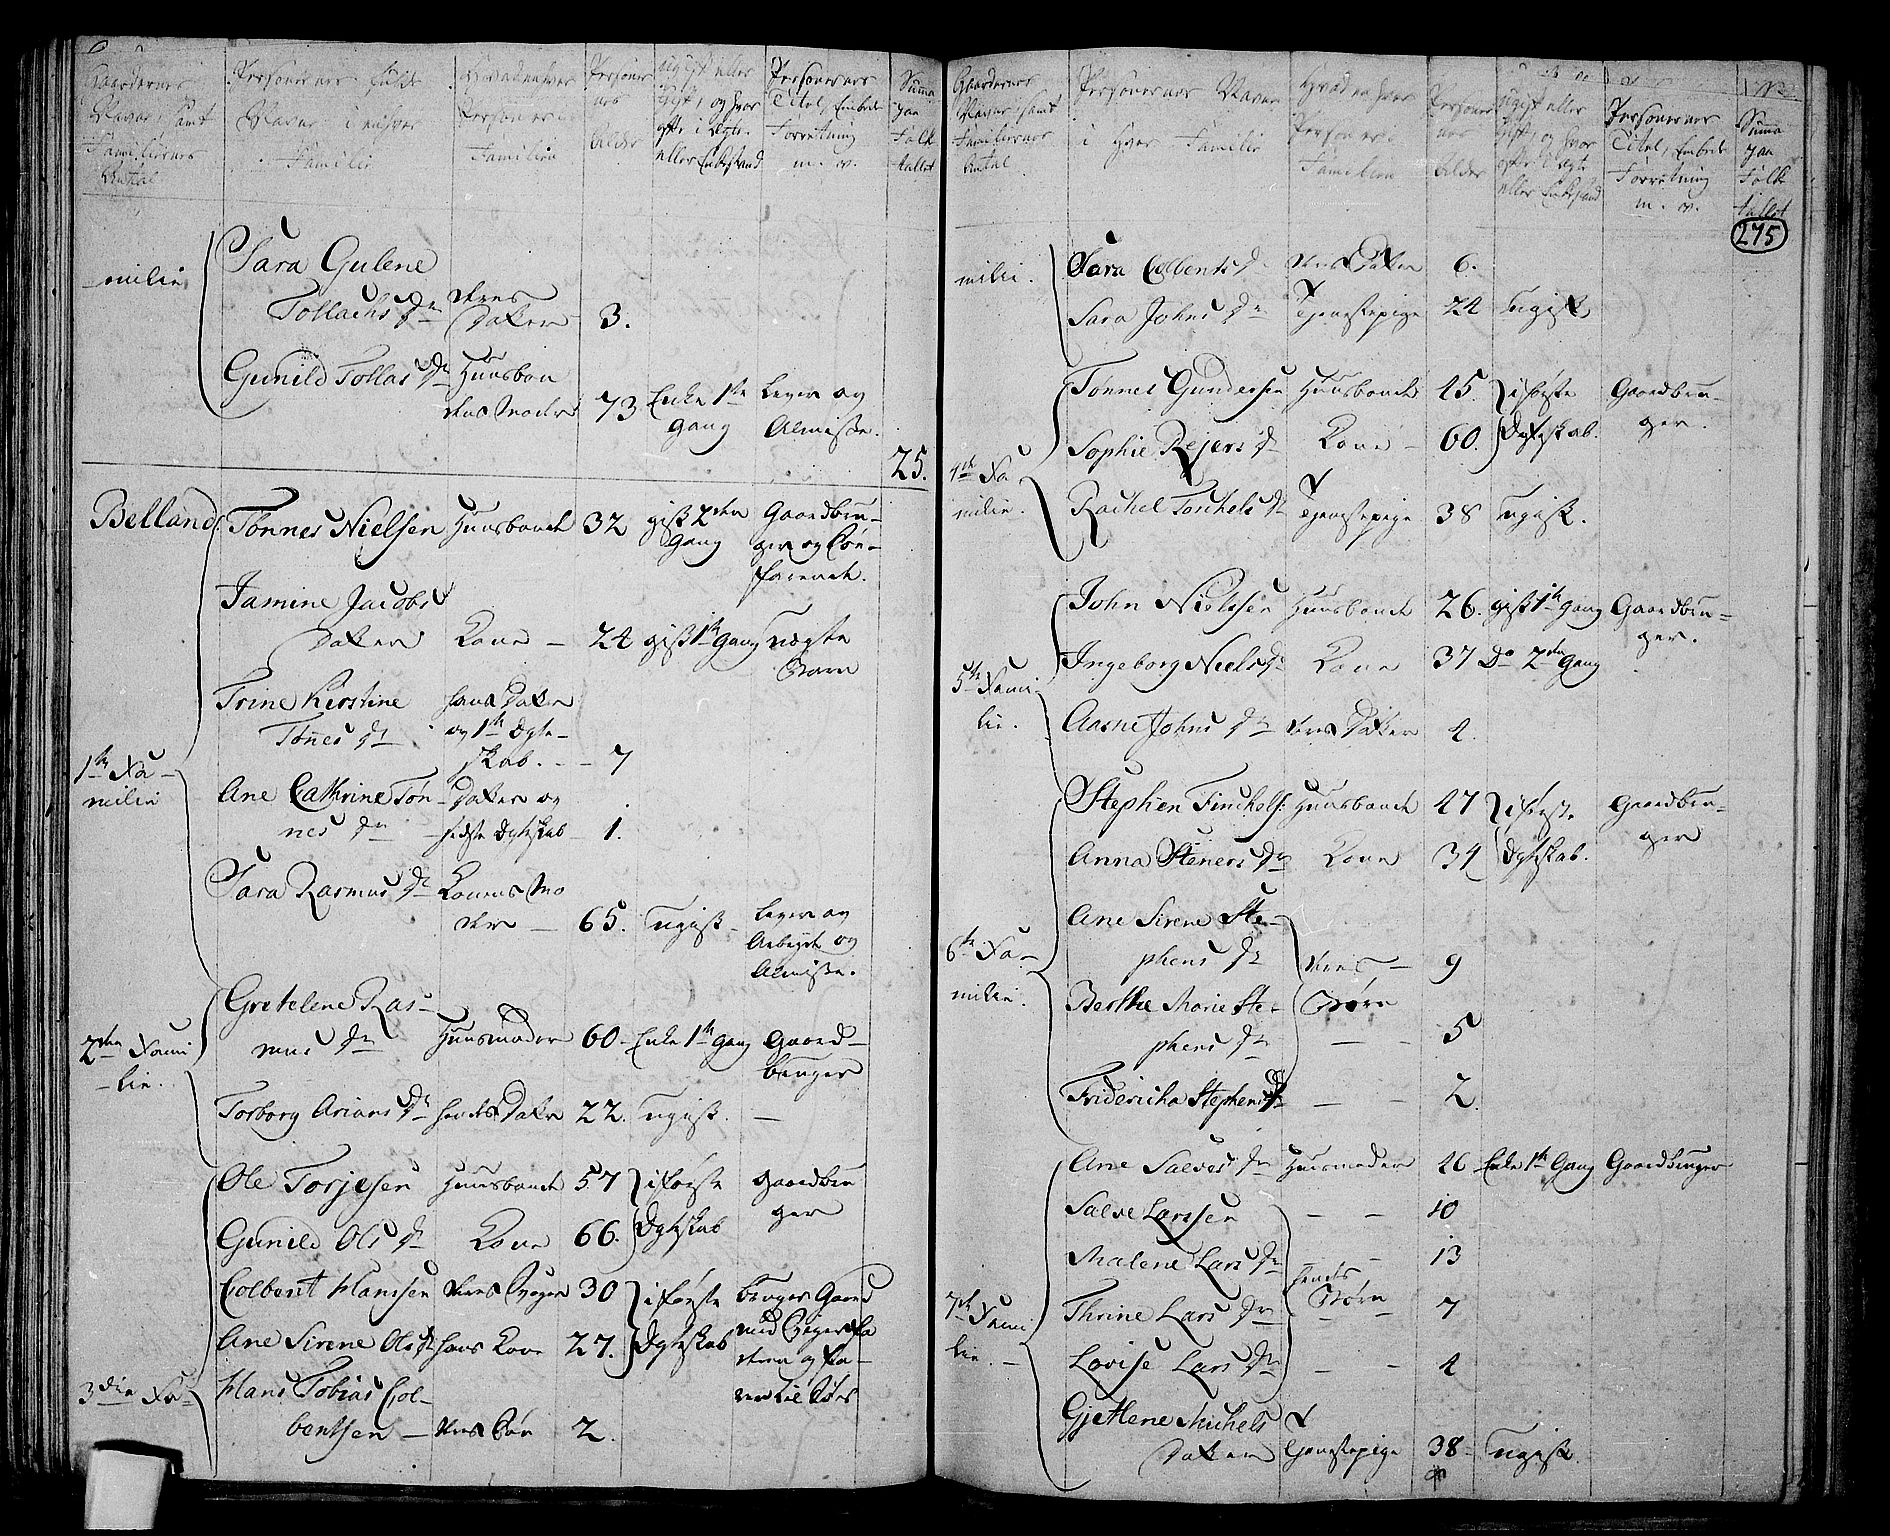 Gaardernes
Navne, samt
Familiernes
Antal
Personernes fulde
Navne i enhver
Familie
Hvad enhver
Person er i
Familien
Personer
nes
Alder
ugift eller
gift, og hvor
ofte i Ægte-
eller Enkestand
Personernes
Titel, Embede
Forretning
m. v.
Summa
paa
Folk
tallet
milie
Sara Gulene
Tollachs Dr
deres
Datter
3.
Gunild Tollas Dr
Huusbon
dens Moder
73
Enke 1ste
Gang
Lever af
Almisse.
25.
Belland
Tønnes Nielsen Huusbonde 32 gift 2den
Gang
Gaardbru-
ger og Søe-
farende.
Jamine Jacobs
Datter Kone — 24 gift 1ste Gang
Trine Kirstine
Tønnes Dr
hans Datter
og 1ste Ægte-
skab. — 7
1ste Fa-
milie
Ane Cathrine Tøn-
nes Dr
Datter af
sidste Ægteskab 1.
Sara Rasmus Dr Konens Mo
der — 65. ugift
Lever af
Arbeyde og
Almisse.
2den Fami
lie.
Gretelene Ras-
mus Dr
Huusmoder 60 Enke 1ste Gang Gaard-
bruger
Torborg Arians Dr hendes Datter 22. ugift. —
Ole Torjesen Huusbonde 57 i første Gaardbru
ger
Gunild Ols Dr Kone 66. Ægteskab
Colbent Hanssen deres 30 i første bruger Gaard
Ane Sirene Ols Dr hans Kone 27. Ægteskab
3die Fa-
Hans Tobias Col-
bentsen — deres Søn 2.
Gaardernes
Navne, samt
Familiernes
Antal
Personernes Navne
i hver Familie
Hvad en hver
Person er i
Familien
Personer
nes
Alder
ugift eller
gift, og hvor
ofte i Ægte
eller Enkestand
Personernes
Titel, Embede
Forretning
m. v.
Summa
paa
Folk
tallet
275
milie.
Sara Colbents Dr deres Datter 6.
Sara Johns Dr Tjenestepige 24 ugift
4de Fa
milie.
Tønnes Gundersen Huusbonde 45. i første Gaardbru-
ger.
Sophie Rejers Dr Kone — 60. Ægteskab.
Rachel Torkels Dr Tjenestepige 38 ugift.
5te Fami
lie.
John Nielssen Huusbonde 26. gift 1ste Gang Gaardbru-
ger.
Ingeborg Niels Dr Kone 37 Do 2den Gang
Aasne Johns Dr deres Datter 4.
6te Fa-
milie.
Stephen Finckels: Huusbonde 47 i første Gaardbru-
ger
Anna Steners Dr Kone 34 Ægteskab.
Ane Sirene Ste-
phens Dr deres — 9
Berthe Marie Ste-
phens Dr
Børn
— — 5
Fridericha Stephens Dr — — 2.
7de Fami
lie. —
Ane Salves Dr Huusmoder 46 Enke 1ste Gang Gaardbruger
Salve Larssen — — 10
Malene Lars Dr — — 13
hendes
Børn
Thrine Lars Dr — — 7
Lovise Lars Dr — — 4
Gjetlene Michels
Datter Tjenestepige 38 ugift.